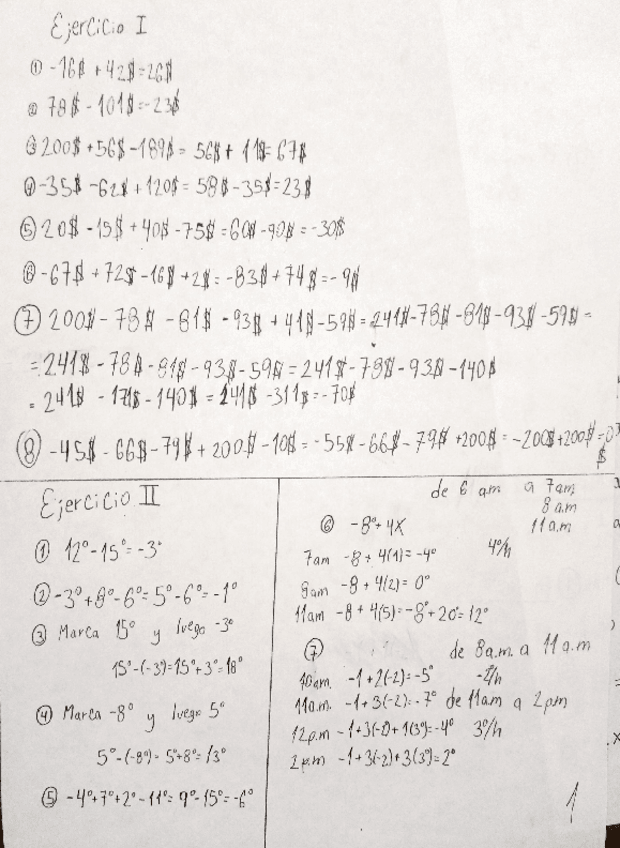 Ejercicio I
① -16$ + 42$ = 26$
② 78$ - 101$ = -23$
③ 200$ + 56$ - 189$ = 56$ + 11$ = 67$
④ -35$ - 62$ + 120$ = 58$ - 35$ = 23$
⑤ 20$ - 15$ + 40$ - 75$ = 60$ - 90$ = -30$
⑥ -67$ + 72$ - 16$ + 2$ = -83$ + 74$ = -9$
⑦ 200$ - 78$ - 81$ - 93$ + 41$ - 59$ = 241$ - 78$ - 81$ - 93$ - 59$ =
= 241$ - 78$ - 81$ - 93$ - 59$ = 241$ - 78$ - 93$ - 140$
= 241$ - 171$ - 140$ = 241$ - 311$ = -70$
⑧ -45$ - 66$ - 79$ + 200$ - 10$ = -55$ - 66$ - 79$ + 200$ = -200$ + 200$ = 0
$
Ejercicio II
① 12° - 15° = -3°
② -3° + 8° - 6° = 5° - 6° = -1°
③ Marca 15° y luego -3°
15° - (-3°) = 15° + 3° = 18°
④ Marca -8° y luego 5°
5° - (-8°) = 5° + 8° = 13°
⑤ -4° + 7° + 2° - 11° = 9° - 15° = -6°
de 6 am a 7am
8 a.m
⑥ -8° + 4x 11 a.m
7am -8 + 4(1) = -4° 4°/h
8am -8 + 4(2) = 0°
11am -8 + 4(5) = -8° + 20° = 12°
⑦ de 8a.m. a 11 a.m
10am. -1 + 2(-2) = -5° -2°/h
11a.m. -1 + 3(-2) = -7° de 11am a 2pm
12p.m -1 + 3(-2) + 1(3°) = -4° 3°/h
2p.m -1 + 3(-2) + 3(3°) = 2°
1